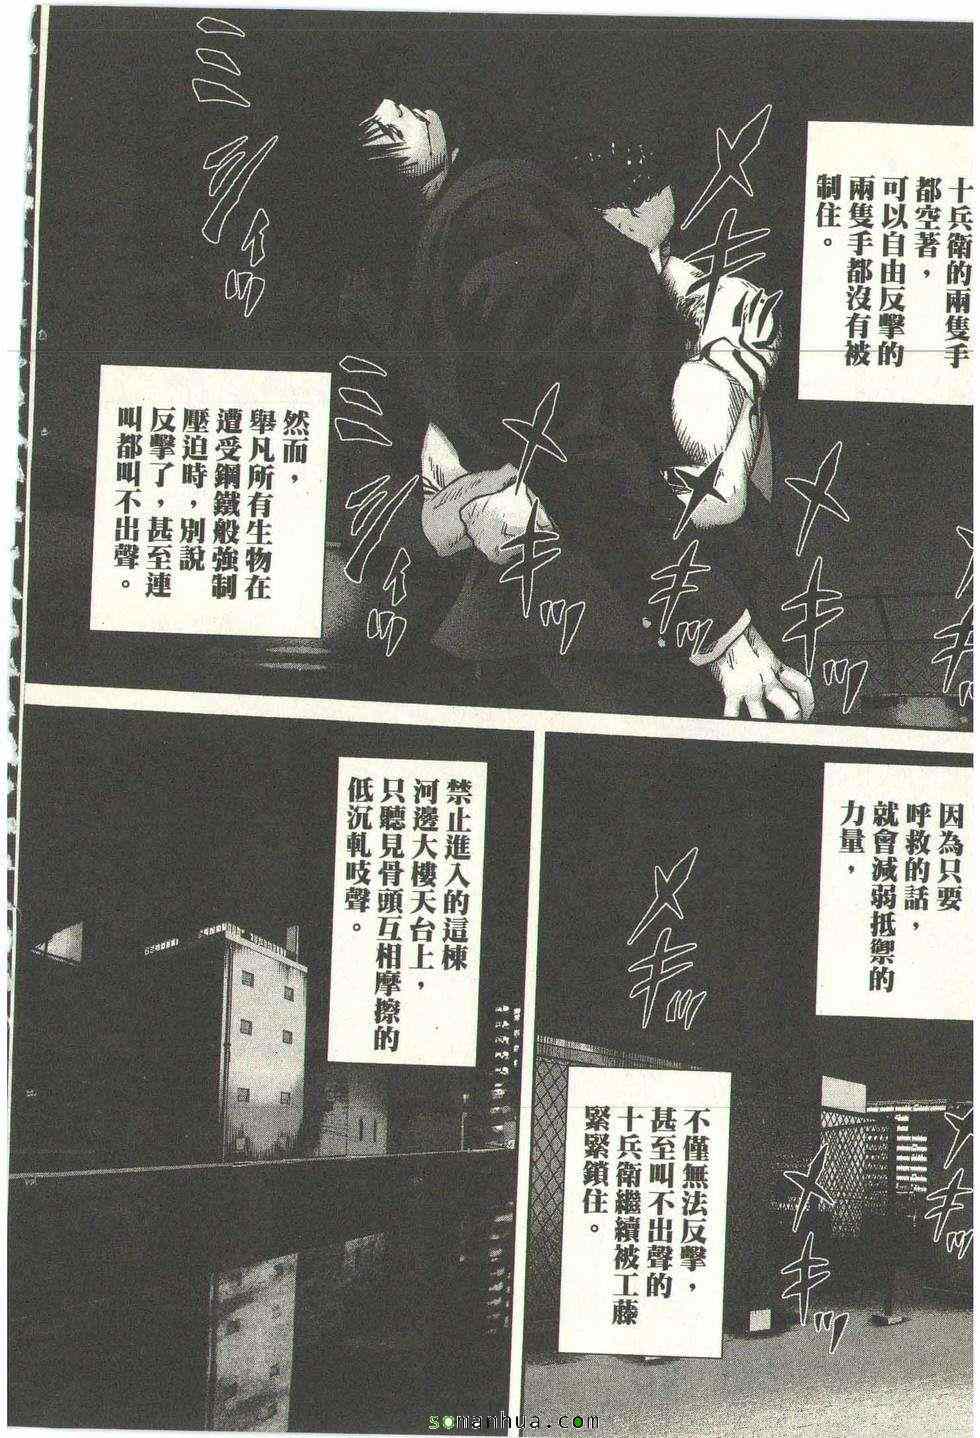 十兵衛的兩隻手
都空著，
可以自由反擊的
兩隻手都沒有被
制住。
然而，
舉凡所有生物在
遭受鋼鐵般強制
壓迫時，別說
反擊了，甚至連
叫都叫不出聲。
ミシ
ミシ
ミシィッ
ミシィッ
メキッ
メキッ
メキッ
メキッ
因為只要
呼救的話，
就會減弱抵禦的
力量，
不僅無法反擊，
甚至叫不出聲的
十兵衛繼續被工藤
緊緊鎖住。
メキッ
メキッ
メキッ
禁止進入的這棟
河邊大樓天台上，
只聽見骨頭互相摩擦的
低沉軋吱聲。
somanhua.com